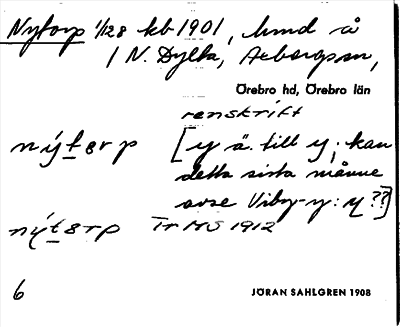 Nytorp 1/128 kb 1901, hmd å
/ N. Dylta, Axbergs sn,
Örebro hd, Örebro län
renskrift
nýtɵrp [y ä. till y; kan
detta sista månne
avse Viby-y: y??]
nýtɵrp Tr MS 1912
6
JÖRAN SAHLGREN 1908